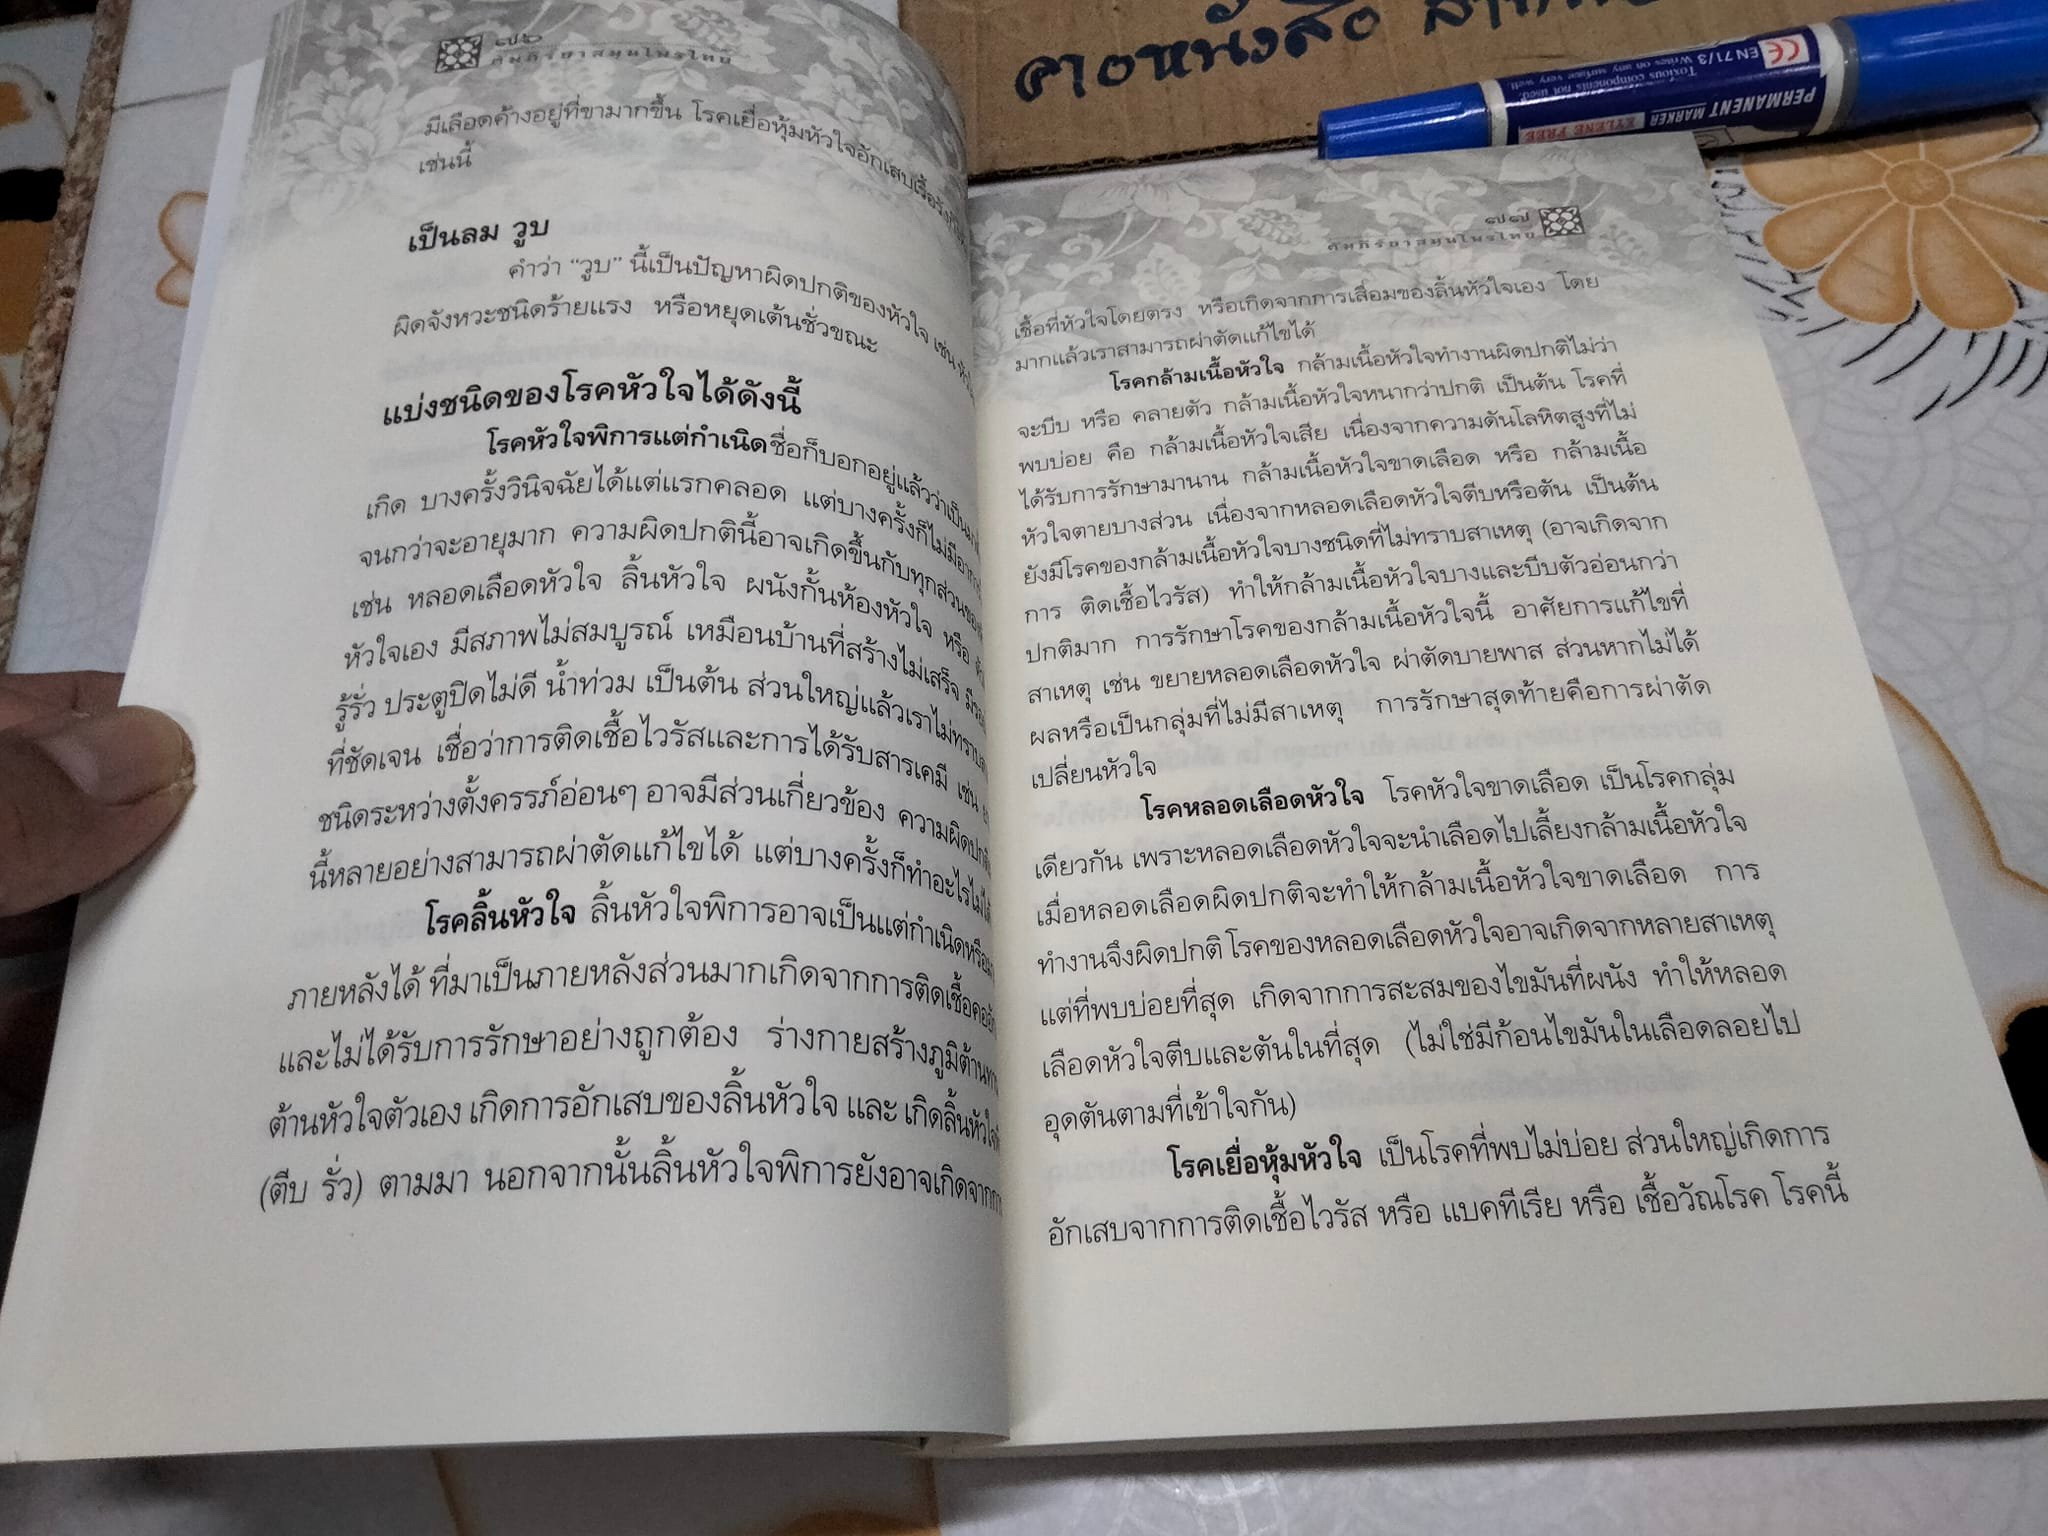 ๗๖
คัมภีร์ยาสมุนไพรไทย
มีเลือดค้างอยู่ที่ขามากขึ้น โรคเยื่อหุ้มหัวใจอักเสบเรื้อรัง
เช่นนี้
เป็นลม วูบ
คำว่า “วูบ” นี้เป็นปัญหาผิดปกติของหัวใจ เช่น
ผิดจังหวะชนิดร้ายแรง หรือหยุดเต้นชั่วขณะ
แบ่งชนิดของโรคหัวใจได้ดังนี้
โรคหัวใจพิการแต่กำเนิด ชื่อก็บอกอยู่แล้วว่าเป็น
เกิด บางครั้งวินิจฉัยได้แต่แรกคลอด แต่บางครั้งก็ไม่มี
จนกว่าจะอายุมาก ความผิดปกตินี้อาจเกิดขึ้นกับทุกส่วน
เช่น หลอดเลือดหัวใจ ลิ้นหัวใจ ผนังกั้นห้องหัวใจ หรือ
หัวใจเอง มีสภาพไม่สมบูรณ์ เหมือนบ้านที่สร้างไม่เสร็จ
รู้รั่ว ประตูปิดไม่ดี น้ำท่วม เป็นต้น ส่วนใหญ่แล้วเราไม่ทราบ
ที่ชัดเจน เชื่อว่าการติดเชื้อไวรัสและการได้รับสารเคมี เช่น
ชนิดระหว่างตั้งครรภ์อ่อนๆ อาจมีส่วนเกี่ยวข้อง ความผิดปกติ
นี้หลายอย่างสามารถผ่าตัดแก้ไขได้ แต่บางครั้งก็ทำอะไรไม่ได้
โรคลิ้นหัวใจ ลิ้นหัวใจพิการอาจเป็นแต่กำเนิดหรือ
ภายหลังได้ ที่มาเป็นภายหลังส่วนมากเกิดจากการติดเชื้อ
และไม่ได้รับการรักษาอย่างถูกต้อง ร่างกายสร้างภูมิต้านทาน
ต้านหัวใจตัวเอง เกิดการอักเสบของลิ้นหัวใจ และ เกิดลิ้น
(ตีบ รั่ว) ตามมา นอกจากนั้นลิ้นหัวใจพิการยังอาจเกิดจาก
คาดหนังสือ
PERMANENT MARKER
XYLENE FREE
Toxious components not used.
Writes on any surface very well.
CE
EN71/3
๗๗
คัมภีร์ยาสมุนไพรไทย
เชื้อที่หัวใจโดยตรง หรือเกิดจากการเสื่อมของลิ้นหัวใจเอง โดย
มากแล้วเราสามารถผ่าตัดแก้ไขได้
โรคกล้ามเนื้อหัวใจ กล้ามเนื้อหัวใจทำงานผิดปกติไม่ว่า
จะบีบ หรือ คลายตัว กล้ามเนื้อหัวใจหนากว่าปกติ เป็นต้น โรคที่
พบบ่อย คือ กล้ามเนื้อหัวใจเสีย เนื่องจากความดันโลหิตสูงที่ไม่
ได้รับการรักษามานาน กล้ามเนื้อหัวใจขาดเลือด หรือ กล้ามเนื้อ
หัวใจตายบางส่วน เนื่องจากหลอดเลือดหัวใจตีบหรือตัน เป็นต้น
ยังมีโรคของกล้ามเนื้อหัวใจบางชนิดที่ไม่ทราบสาเหตุ (อาจเกิดจาก
การ ติดเชื้อไวรัส) ทำให้กล้ามเนื้อหัวใจบางและบีบตัวอ่อนกว่า
ปกติมาก การรักษาโรคของกล้ามเนื้อหัวใจนี้ อาศัยการแก้ไขที่
สาเหตุ เช่น ขยายหลอดเลือดหัวใจ ผ่าตัดบายพาส ส่วนหากไม่ได้
ผลหรือเป็นกลุ่มที่ไม่มีสาเหตุ การรักษาสุดท้ายคือการผ่าตัด
เปลี่ยนหัวใจ
โรคหลอดเลือดหัวใจ โรคหัวใจขาดเลือด เป็นโรคกลุ่ม
เดียวกัน เพราะหลอดเลือดหัวใจจะนำเลือดไปเลี้ยงกล้ามเนื้อหัวใจ
เมื่อหลอดเลือดผิดปกติจะทำให้กล้ามเนื้อหัวใจขาดเลือด การ
ทำงานจึงผิดปกติ โรคของหลอดเลือดหัวใจอาจเกิดจากหลายสาเหตุ
แต่ที่พบบ่อยที่สุด เกิดจากการสะสมของไขมันที่ผนัง ทำให้หลอด
เลือดหัวใจตีบและตันในที่สุด (ไม่ใช่มีก้อนไขมันในเลือดลอยไป
อุดตันตามที่เข้าใจกัน)
โรคเยื่อหุ้มหัวใจ เป็นโรคที่พบไม่บ่อย ส่วนใหญ่เกิดการ
อักเสบจากการติดเชื้อไวรัส หรือ แบคทีเรีย หรือ เชื้อวัณโรค โรคนี้